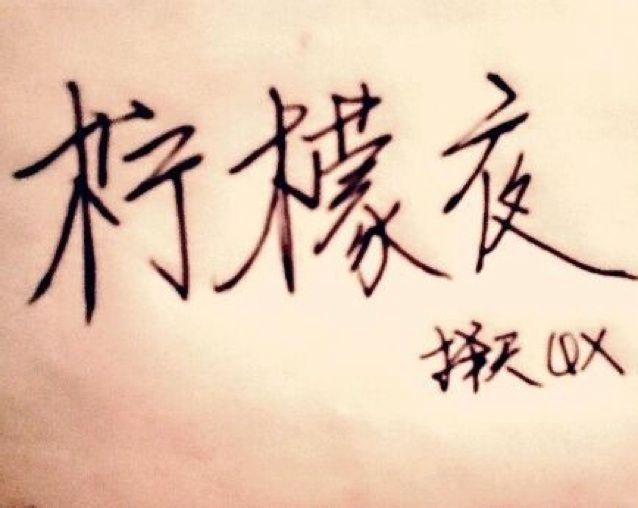 柠檬夜
择天QX